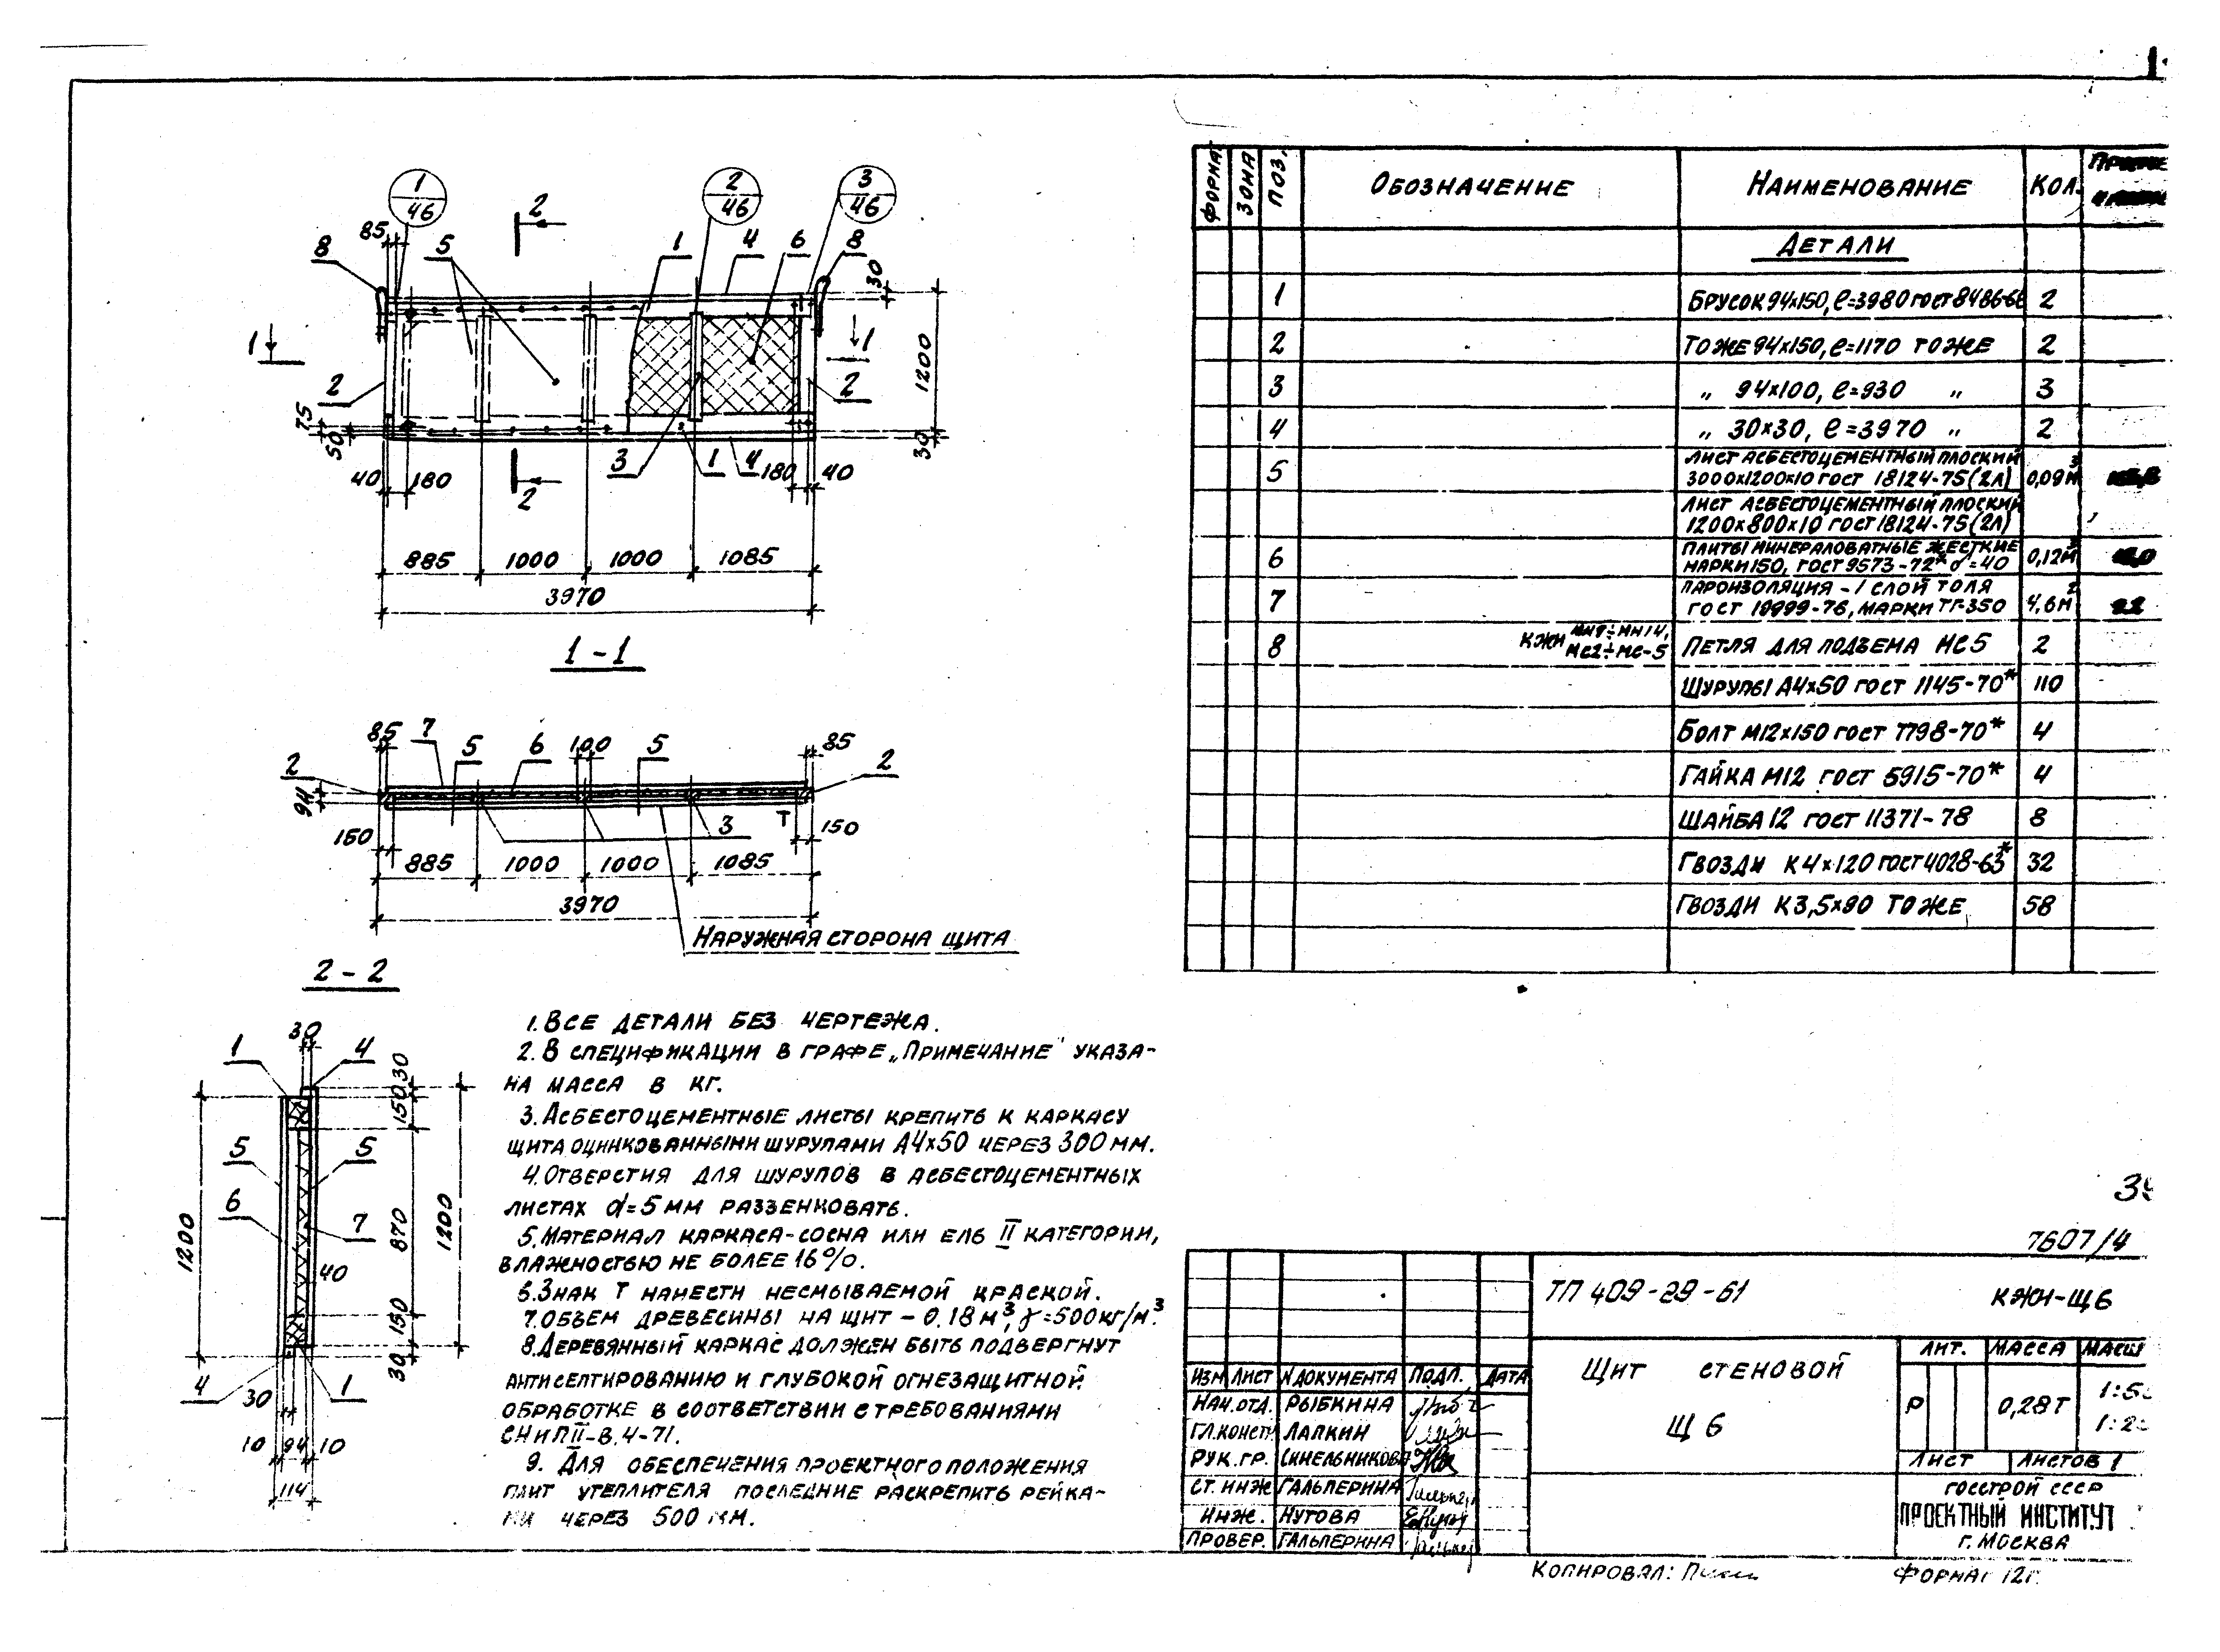 1
46
2
46
3
46
2
85
8
5
1
4
6
8
30
1
1
2
2
1200
75
50
30
40
180
3
1
4
180
40
2
885
1000
1000
1085
3970
1-1
85
7
5
6
100
5
85
2
2
94
150
3
Т
150
885
1000
1000
1085
3970
Наружная сторона щита
2-2
30
1
4
30
150
5
5
6
7
1200
870
1200
40
150
30
4
30
1
10
94
10
114
1. Все детали без чертежа.
2. В спецификации в графе „Примечание" указа-
на масса в кг.
3. Асбестоцементные листы крепить к каркасу
щита оцинкованными шурупами А4х50 через 300 мм.
4. Отверстия для шурупов в асбестоцементных
листах d=5 мм раззенковать.
5. Материал каркаса-сосна или ель II категории,
влажностью не более 16%.
6. Знак Т нанести несмываемой краской.
7. Объем древесины на щит - 0.18 м³, γ=500кг/м³.
8. Деревянный каркас должен быть подвергнут
антисептированию и глубокой огнезащитной
обработке в соответствии с требованиями
СНиП II-В.4-71.
9. Для обеспечения проектного положения
плит утеплителя последние раскрепить рейка-
ми через 500 мм.
Формат
Зона
Поз.
Обозначение
Наименование
Кол.
Детали
1 Брусок 94х150, ℓ=3980 гост 8486-66 2
2 Тоже 94х150, ℓ=1170 тоже 2
3 „ 94х100, ℓ=930 „ 3
4 „ 30х30, ℓ=3970 „ 2
Лист асбестоцементный плоский
5 3000х1200х10 гост 18124-75 (2л) 0,09м³
Лист асбестоцементный плоский
1200х800х10 гост 18124-75 (2л)
Плиты минераловатные жесткие
6 марки 150, гост 9573-72* d=40 0,12м³
Пароизоляция - 1 слой толя
7 гост 10999-76, марки ТГ-350 4,6м²
8 КЖИ МС2÷МС-5 Петля для подъема МС5 2
Шурупы А4х50 гост 1145-70* 110
Болт М12х150 гост 7798-70* 4
Гайка М12 гост 5915-70* 4
Шайба 12 гост 11371-78 8
Гвозди К4х120 гост 4028-63* 32
Гвозди К3,5х90 тоже 58
7607/4
ТП 409-29-61
КЖИ-Щ6
Изм Лист N документа Подп. Дата
Нач.отд. Рыбкина
Гл.конст. Лапкин
Рук.гр. Синельникова
Ст.инж Гальперина
Инж. Нутова
Провер. Гальперина
Щит стеновой
Щ 6
Лит.
Масса
Р
0,28т
Лист
Листов 1
Госстрой СССР
Проектный институт
г. Москва
Копировал:
Формат 12г.